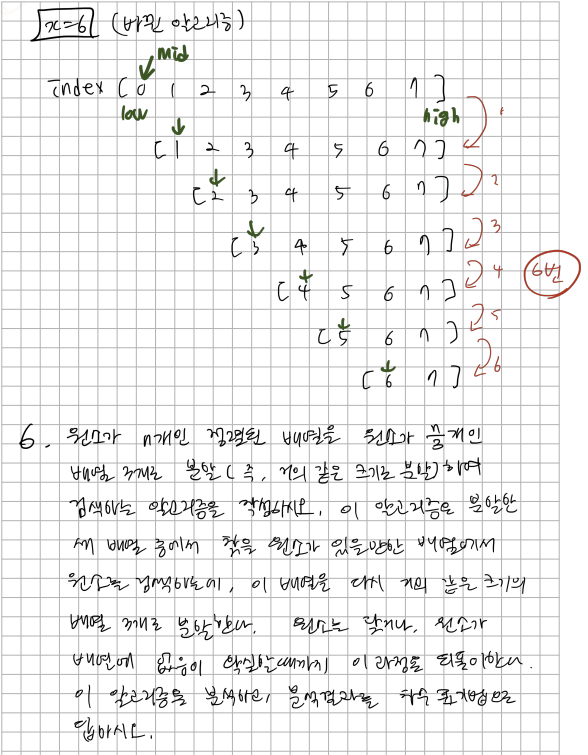 x=6 (바뀐 알고리즘)
mid
index [ 0 1 2 3 4 5 6 7 ]
low high
1
[ 1 2 3 4 5 6 7 ]
2
[ 2 3 4 5 6 7 ]
3
[ 3 4 5 6 7 ]
4
6번
[ 4 5 6 7 ]
5
[ 5 6 7 ]
6
[ 6 7 ]
6. 원소가 n개인 정렬된 배열을 원소가 n/3개인
배열 3개로 분할(즉, 거의 같은 크기로 분할)하여
검색하는 알고리즘을 작성하시오. 이 알고리즘은 분할한
세 배열 중에서 찾을 원소가 있을만한 배열에서
원소를 검색하는데, 이 배열을 다시 거의 같은 크기의
배열 3개로 분할한다. 원소를 찾거나, 원소가
배열에 없음이 확실할때까지 이 과정을 되풀이한다.
이 알고리즘을 분석하고, 분석결과를 차수 표기법으로
답하시오.